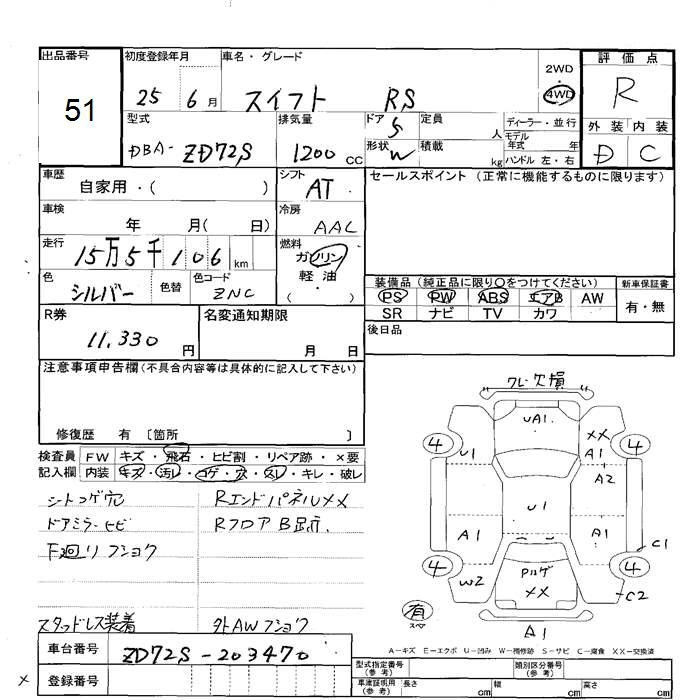 出品番号
51
初度登録年月
25 6月
車名・グレード
スイフト RS
2WD
・
4WD
評価点
R
外装 内装
D C
型式
DBA- ZD72S
排気量
1200 CC
ドア
5
形状
W
定員
人
積載
kg
ディーラー・並行
モデル
年式 年
ハンドル 左・右
車歴
自家用・( )
シフト
AT
セールスポイント (正常に機能するものに限ります)
車検
年 月( 日)
冷房
AAC
走行
15万5千106 km
燃料
ガソリン
軽・油
( )
色
シルバー
色替
色コード
ZNC
装備品(純正品に限り○をつけてください)
PS PW ABS エアB AW
SR ナビ TV カワ
新車保証書
有・無
R券
11,330 円
名変通知期限
月 日
後日品
注意事項申告欄(不具合内容等は具体的に記入して下さい)
修復歴 有 〔箇所 〕
検査員
記入欄
FW キズ・飛石・ヒビ割・リペア跡・×要
内装 キズ・汚レ・コゲ・穴・スレ・キレ・破レ
シートコゲ穴
ドアミラーヒビ
F廻リフショク
スタッドレス装着
RエンドパネルXX
RフロアB足立.
外AWフショク
フレ欠損
UA1
4 4
U1
XX
A1
A2
U1
A1 A1
C1
4 4
W2
Pハゲ
XX
C2
有
スペア
A1
A-キズ E-エクボ U-凹み W-補修跡 S-サビ C-腐食 XX-交換済
車台番号
ZD72S-203470
登録番号
×
型式指定番号
(参考)
類別区分番号
(参考)
車庫証明用
(参考)
長さ cm
幅 cm
高さ cm